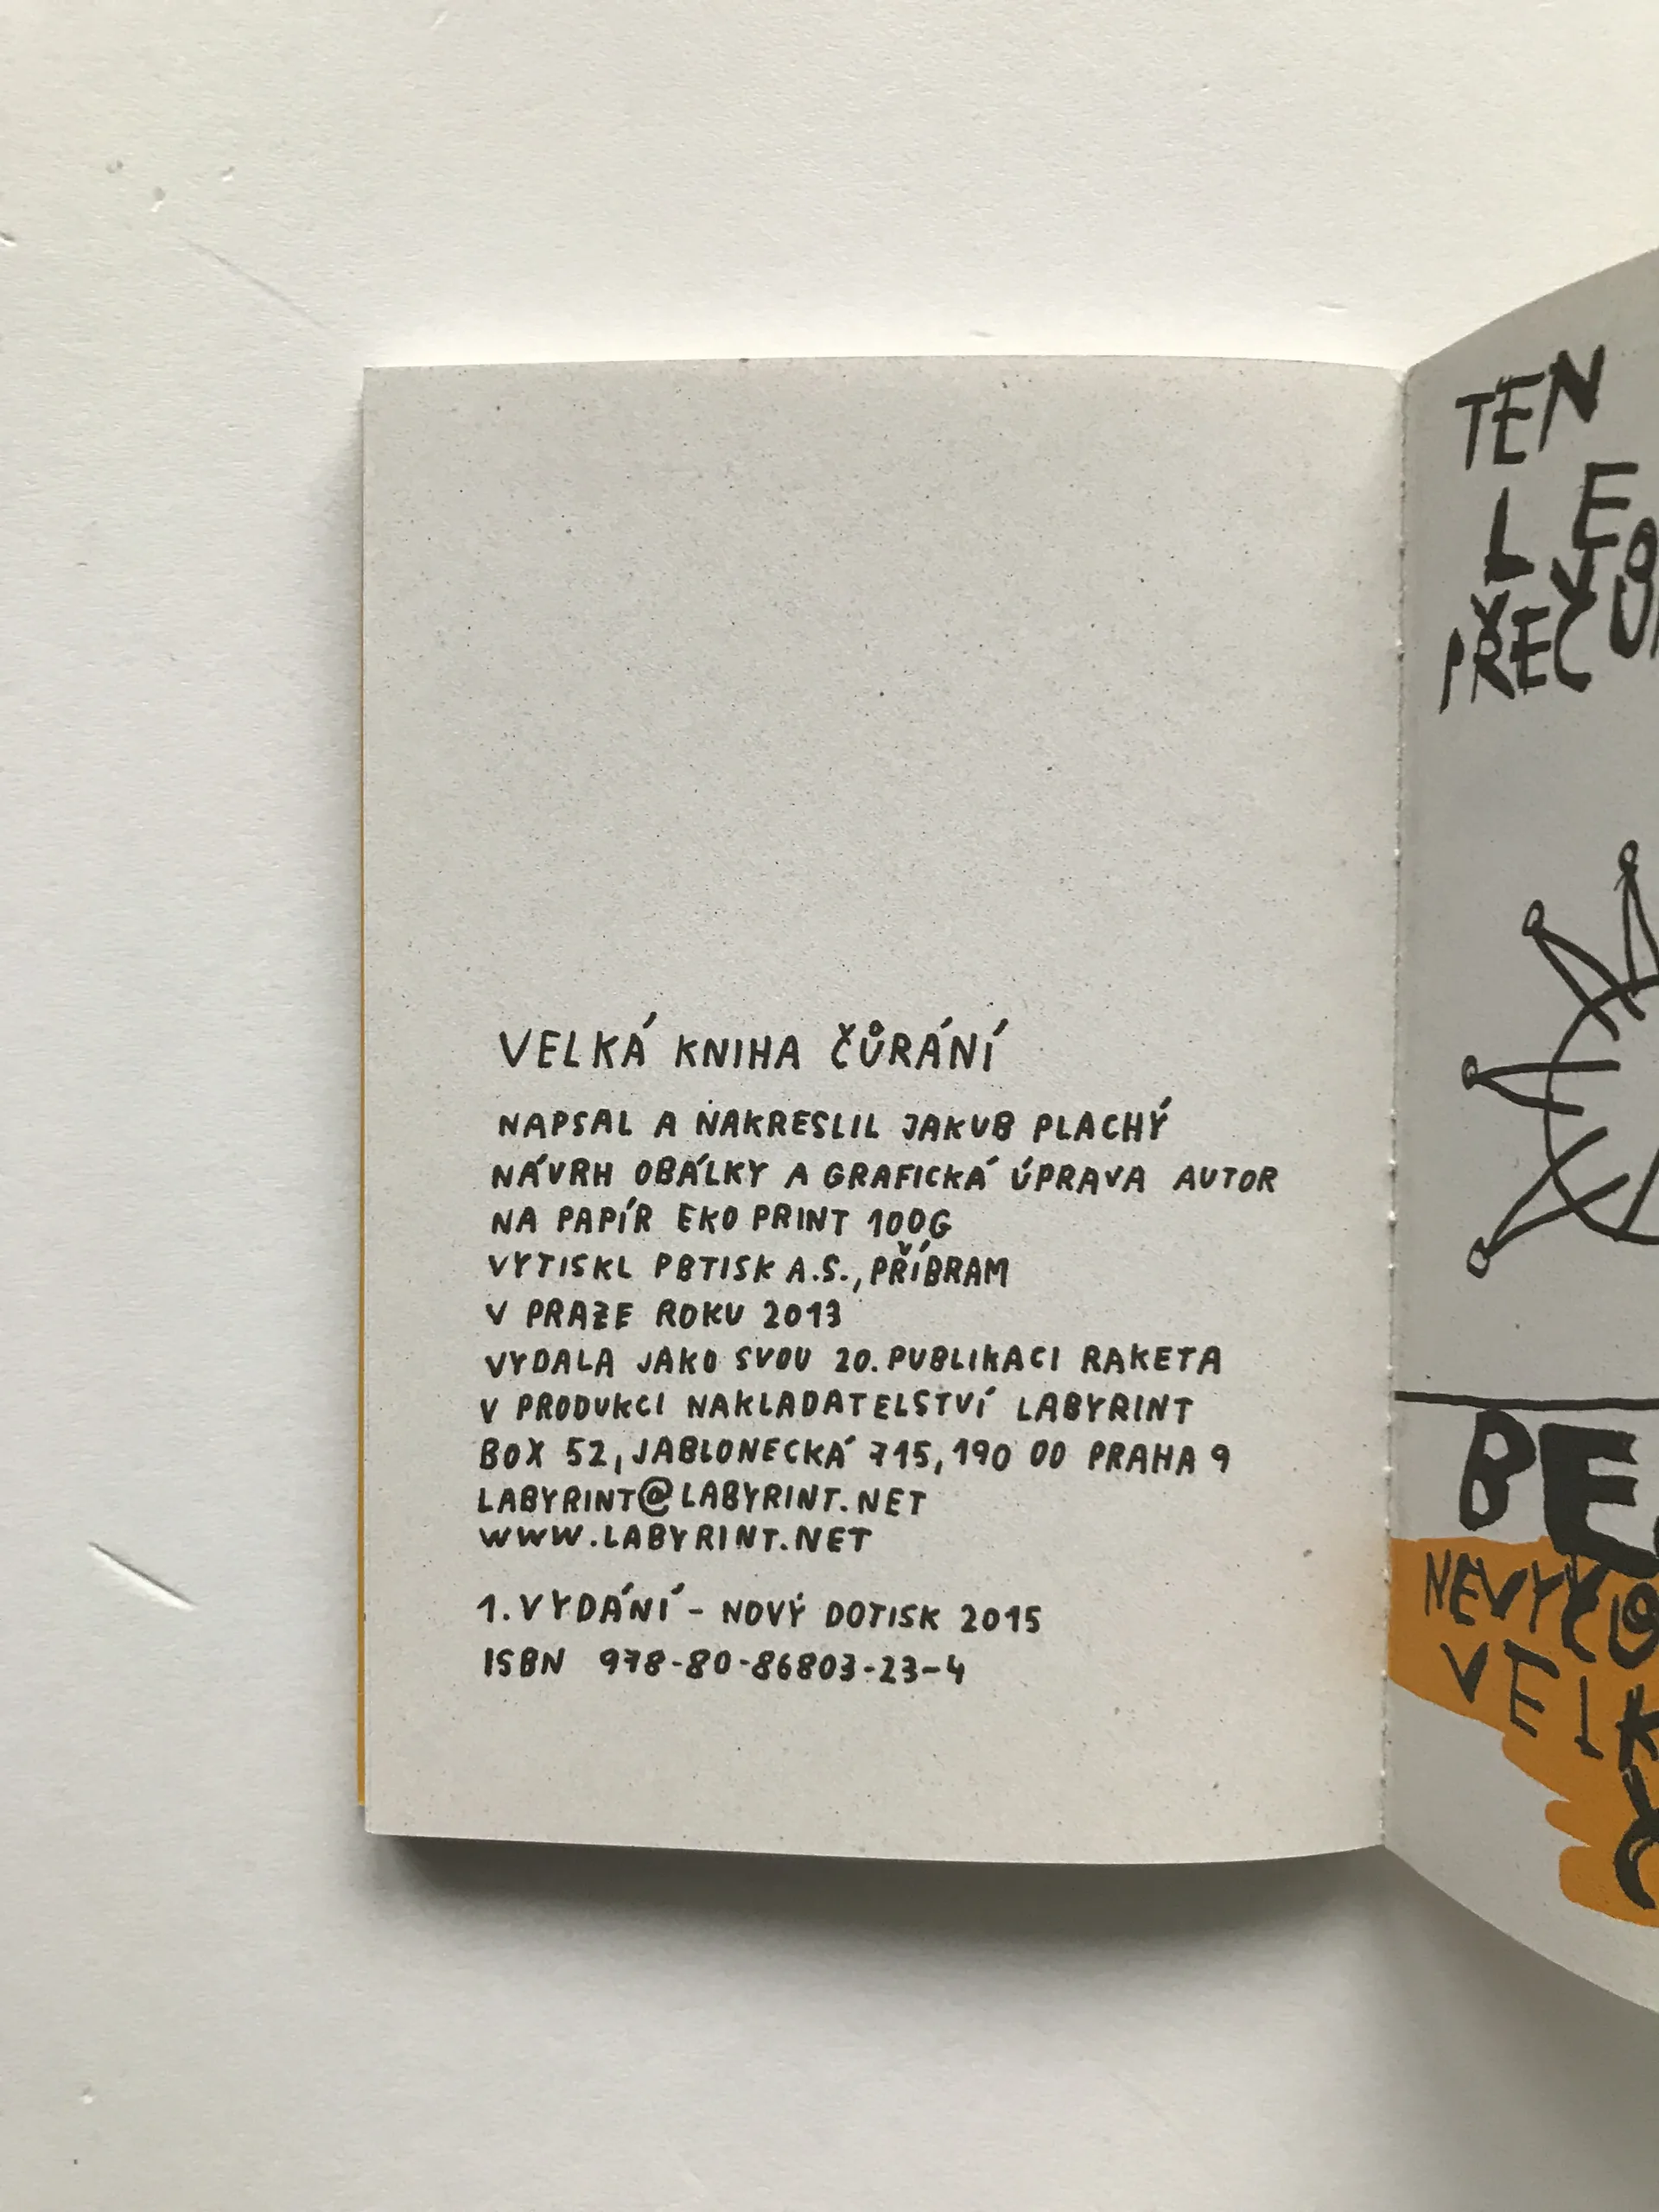 VELKÁ KNIHA ČŮRÁNÍ
NAPSAL A NAKRESLIL JAKUB PLACHÝ
NÁVRH OBÁLKY A GRAFICKÁ ÚPRAVA AUTOR
NA PAPÍR EKO PRINT 100G
VYTISKL PBTISK A.S., PŘÍBRAM
V PRAZE ROKU 2013
VYDALA JAKO SVOU 20. PUBLIKACI RAKETA
V PRODUKCI NAKLADATELSTVÍ LABYRINT
BOX 52, JABLONECKÁ 715, 190 00 PRAHA 9
LABYRINT@LABYRINT.NET
WWW.LABYRINT.NET
1. VYDÁNÍ - NOVÝ DOTISK 2015
ISBN 978-80-86803-23-4
TEN